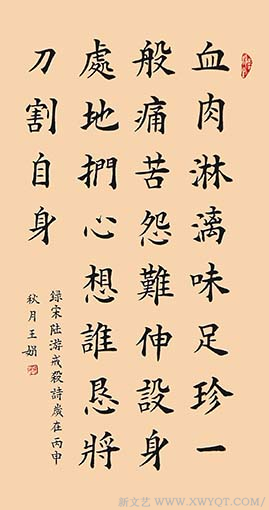 血肉淋漓味足珍一
般痛苦怨難伸設身
處地捫心想誰恳將
刀割自身
録宋陆游戒殺詩歲在丙申
秋月王娟
新文艺 WWW.XWYQT.COM